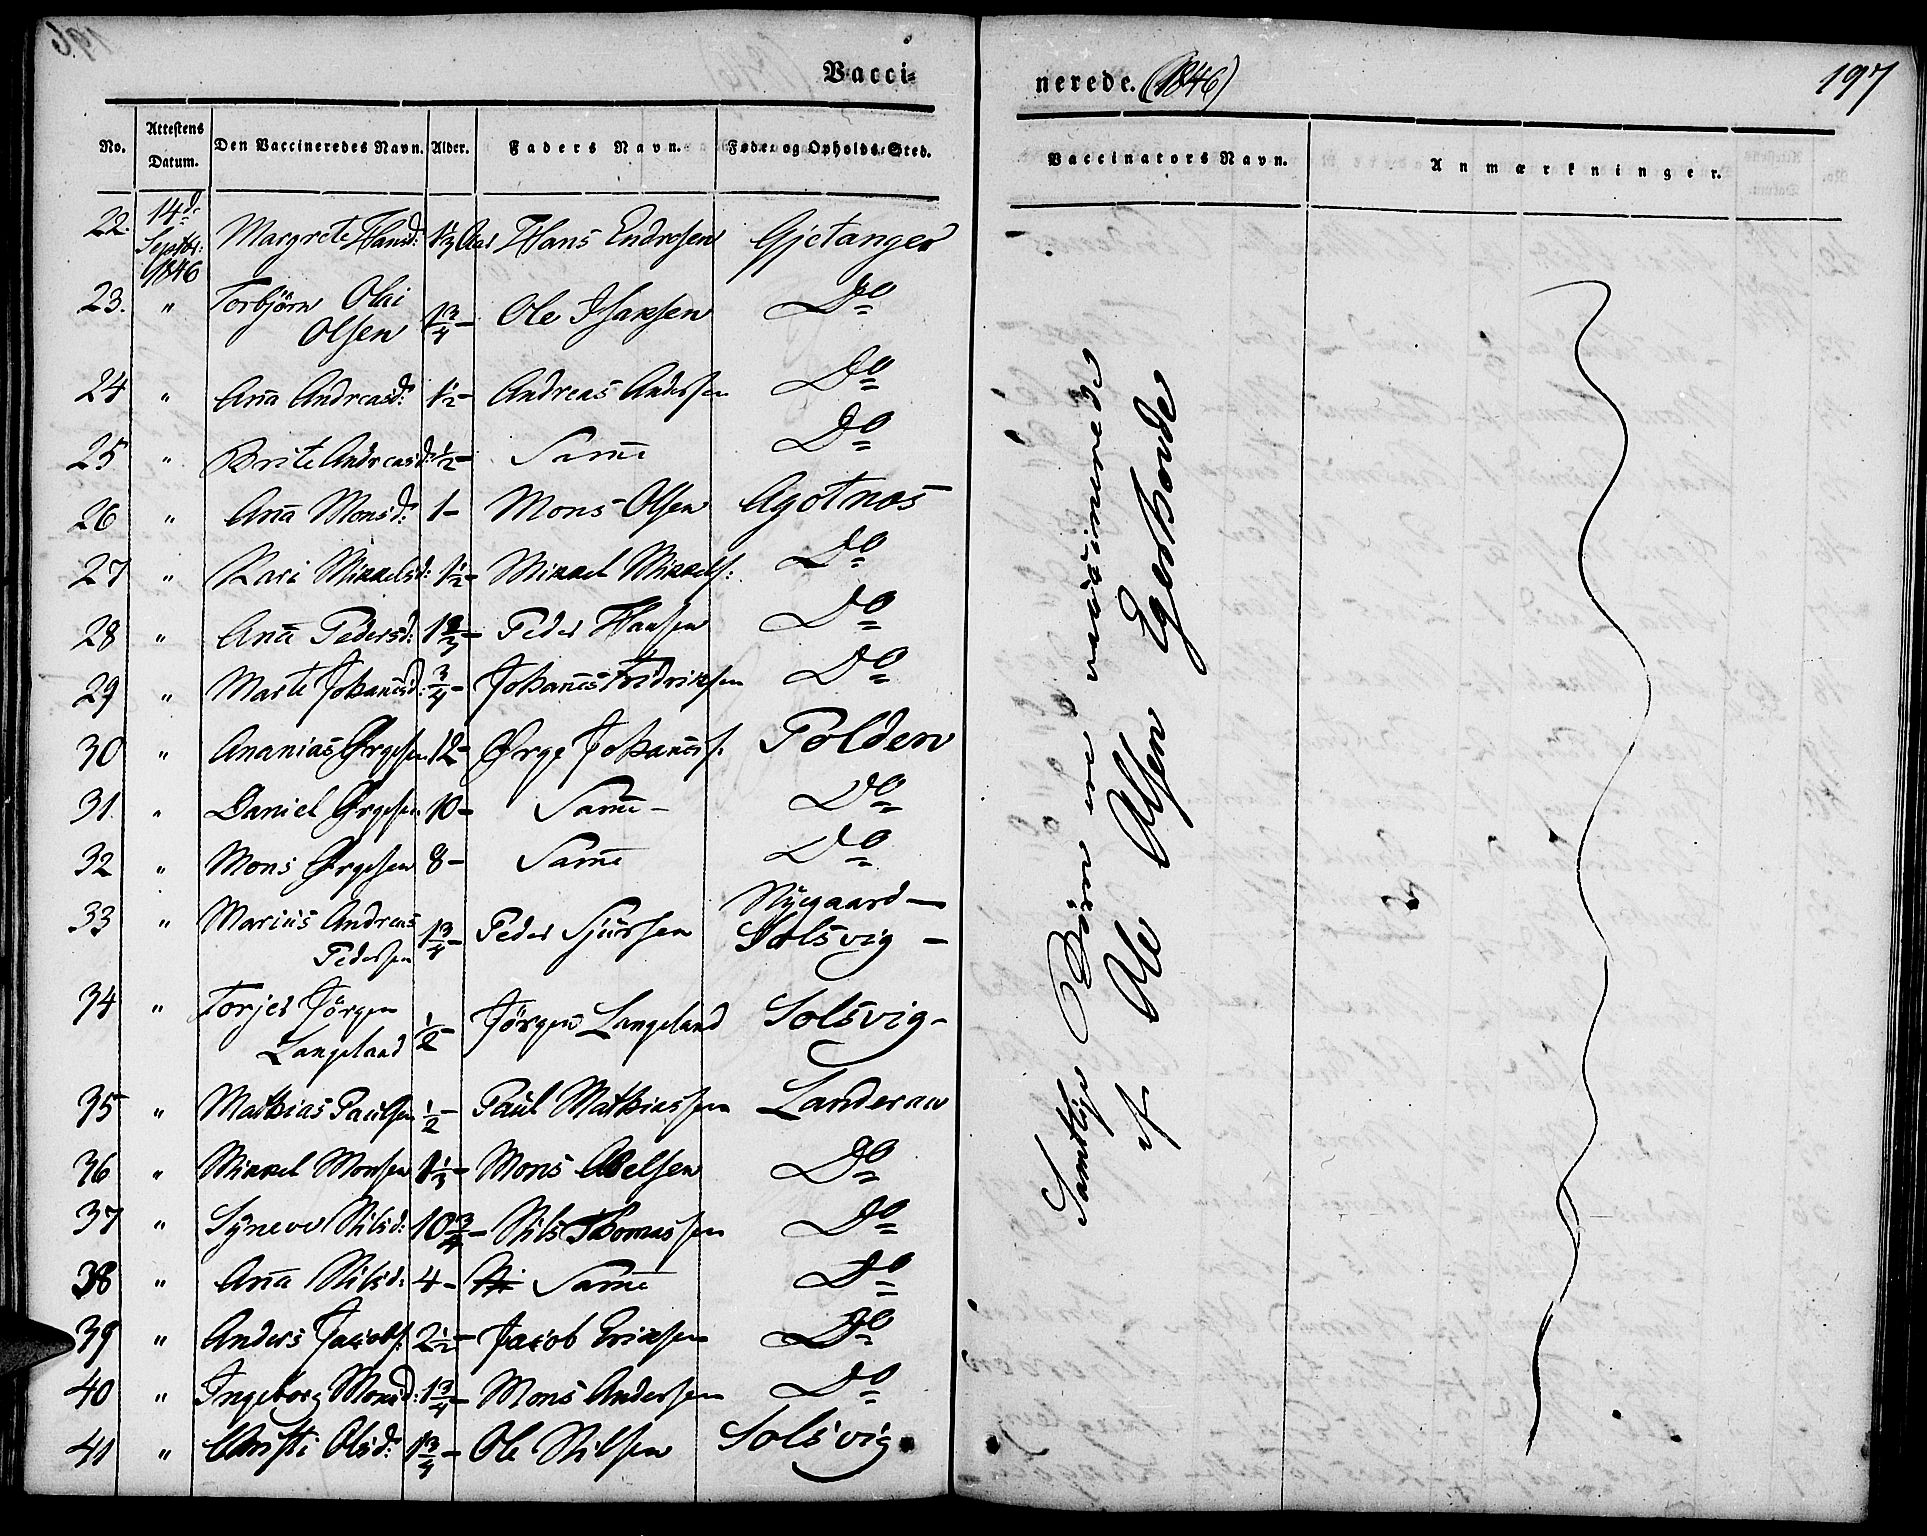 Vacci-
nerede. (1846)
197
No.
Attestens Datum.
Den Vaccineredes Navn.
Alder.
Faders Navn.
Føde- og Opholds-Sted.
Vaccinators Navn.
Anmærkninger.
22. 14d. Septbr. 1846 Margrete Hansd: 1½ Aar Hans Endresen Gjetanger
23. " Torbjörn Olai
Olsen 1¾ - Ole Isaksen Do
24 " Ana Andreasd: 1½ - Andreas Anderssen Do
25 " Brite Andreasd: ½ - Same Do
26 " Ana Monsd: 1 - Mons Olsen Agotnæs
27 " Kari Mikkelsd: 1½ - Mikkel Mikkels: Do
28 " Ana Pedersd: 1⅔ - Peder Hansen Do
29 " Marte Johanesd: ¾ - Johanes Fridriksen Do
30 " Ananias Ørgesen 12 - Ørge Johaness: Polden
31. " Daniel Ørgesen 10 - Same - Do
32 " Mons Ørgesen 8 - Same Do
33 " Marius Andreas
Pedersen 1¾ - Peder Sjursen Nygaard -
Solsvig -
34 " Torjer Jörgen
Langeland ½ - Jörgen Langeland Solsvig -
35 " Mathias Paulsen ½ - Paul Mathiassen Landeraw
36 " Mikkel Monsen 1⅓ - Mons Abelsen Do
37 " Syneve Nilsd: 10¾ - Nils Thomassen Do
38 " Ana Nilsd: 4 - Same Do
39 " Anders Jacobs: 2½ - Jacob Eriksen Do
40 " Ingeborg Monsd: 1¾ - Mons Andersen Do
41 " Christi Olsd: 1¾ - Ole Nilsen Solsvig.
Samtlige Börn ere vaccinerede
af Ole Olsen Egerhovde